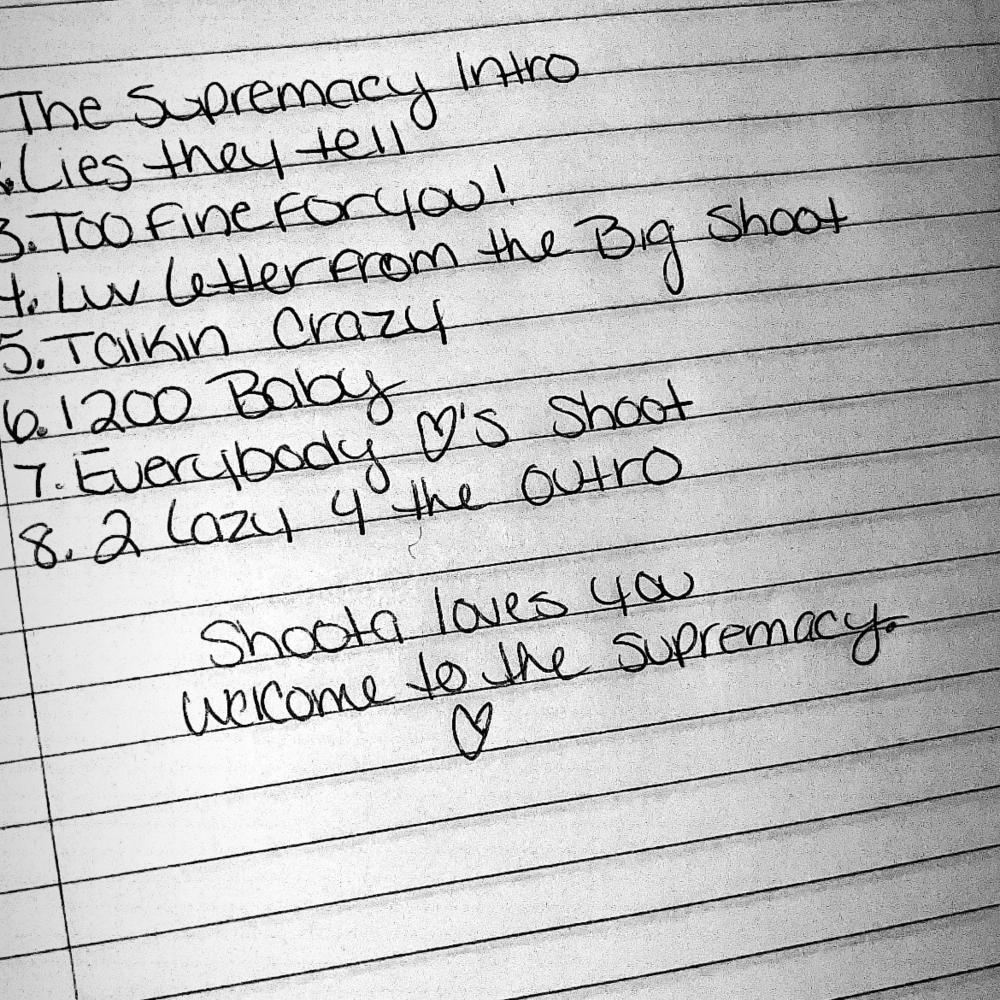 The Supremacy Intro
. Lies they tell
3. Too Fine For you!
4. Luv Letter From the Big Shoot
5. Talkin Crazy
6. 1200 Baby
7. Everybody ♡'s Shoot
8. 2 Lazy 4 the outro
Shoota loves you
welcome to the supremacy.
♡